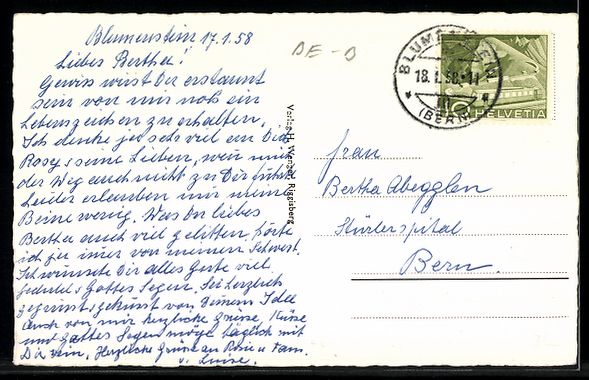 Blumenstein 17.1.58
Liebes Bertha!
Gewiss wirst Du erstaunt
sein von mir noch ein
Lebenszeichen zu erhalten.
Ich denke ja sehr viel an Dich
Rosy & seine Lieben, wen nur
der Weg auch nicht zu Dir
Leider erlauben mir meine
Beine wenig. Was Du liebes
Bertha auch viel gelitten, hörte
ich ja immer von meinen Schwest.
Ich wünsche Dir alles Gute viel
Geduld & Gottes Segen. Sei herzlich
gegrüsst & geküsst von Deinem
Auch von mir herzliche Grüsse, Küsse
und Gottes Segen möge täglich mit
Dir sein, Herzliche Grüsse an Rosie u. Fam.
v. Luise.
BE-B
Verlag H. Wenger, Riggisberg
BLUMENSTEIN
18.1.58-11
(BERN)
10
HELVETIA
Frau
Bertha Abegglen
Bern.